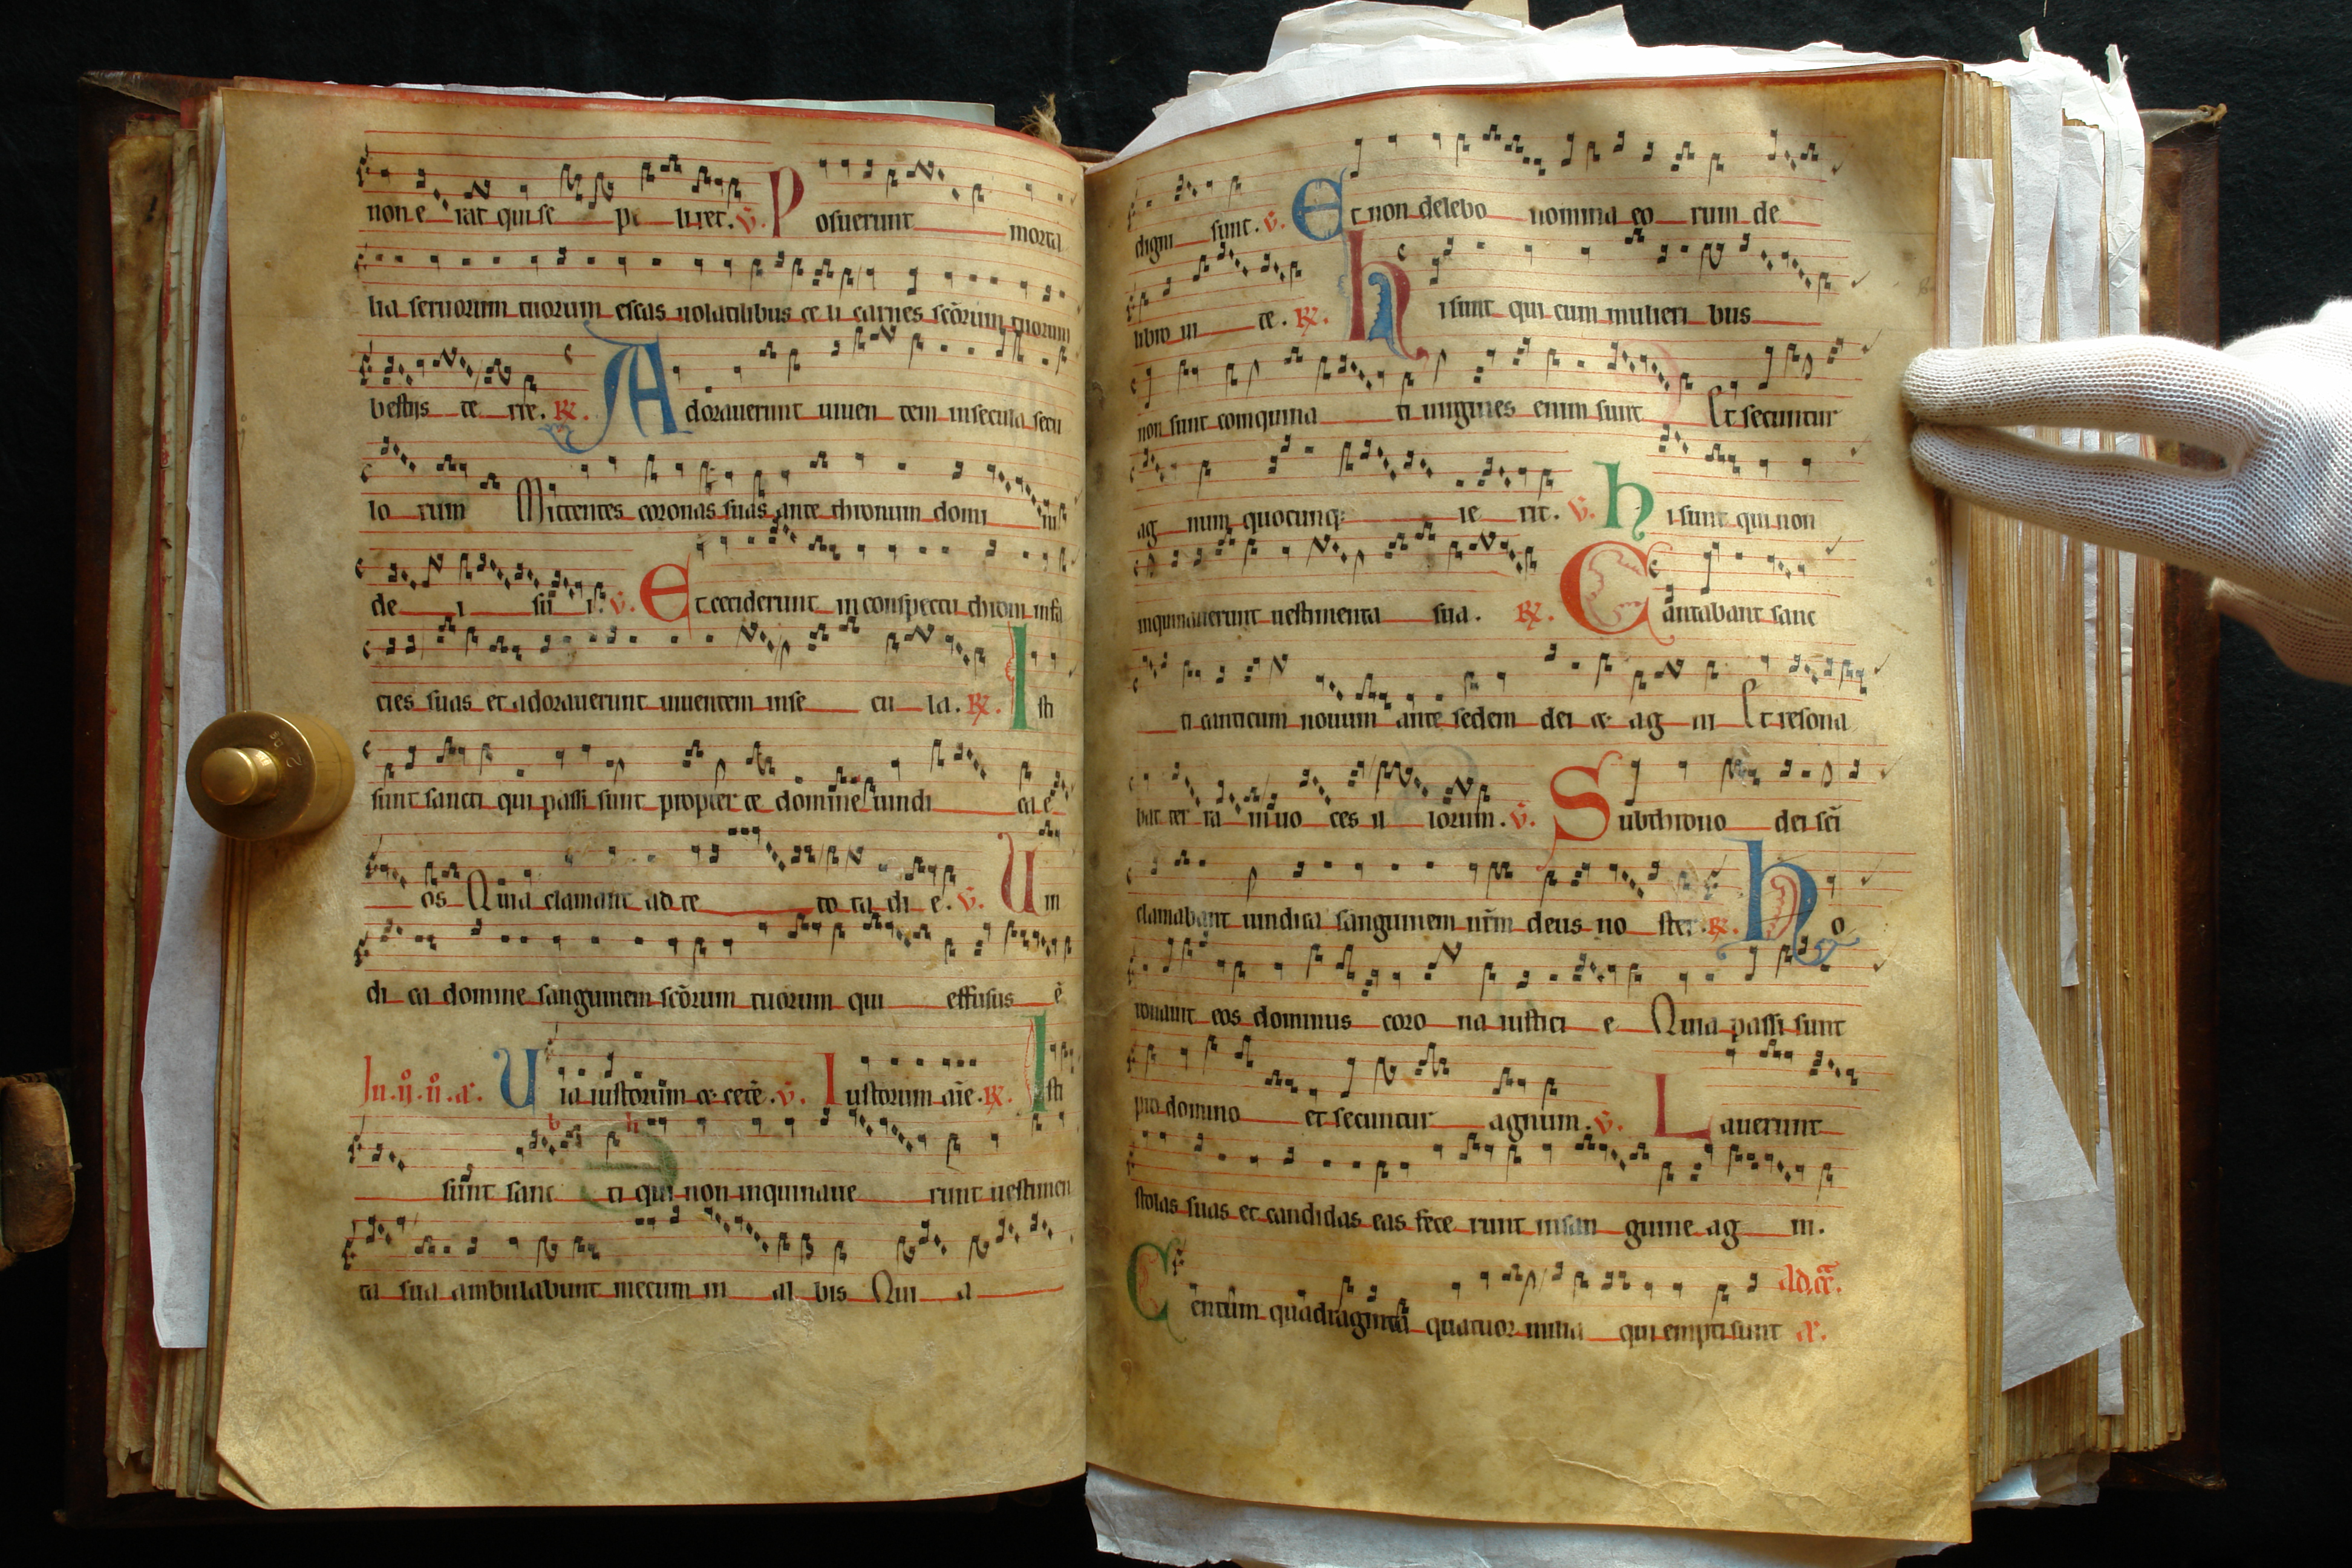 non e rat qui se pe li ret. v. Posuerunt morta
lia seruorum tuorum escas uolatilibus ce li carnes scōrum tuorum
bestijs te rre. R. Adorauerunt uiuen tem insecula secu
lo rum Mittentes coronas suas ante thronum domi ni
de i su i. v. Et ceciderunt in conspectu throni infa
cies suas et adorauerunt uiuentem inse cu la. R. Isti
sunt sancti qui passi sunt propter te domine uindi ca e
os Quia clamant ad te to ta di e. v. Uin
di ca domine sanguinem scōrum tuorum qui effusus ē
Uia iustorum et cete. v. Iustorum aīe. R. Isti
sunt sanc ti qui non inquinaue runt uestimen
ta sua ambulabunt mecum in al bis Qui a
digni sunt. v. Et non delebo nomina eo rum de
libro ui te. R. Hi sunt qui cum mulieri bus
non sunt coinquina ti uirgines enim sunt Et secuntur
ag num quocunq; ie rit. v. Hi sunt qui non
inquinauerunt uestimenta sua. R. Cantabant sanc
ti canticum nouum ante sedem dei et ag ni Et resona
bat ter ra in uo ces il lorum. v. Sub throno dei scī
clamabant uindica sanguinem nr̄m deus no ster. R. Co
ronauit eos dominus coro na iustici e Quia passi sunt
pro domino et secuntur agnum. v. Lauerunt
stolas suas et candidas eas fece runt insan guine ag ni.
Centum quadraginta quatuor milia qui empti sunt